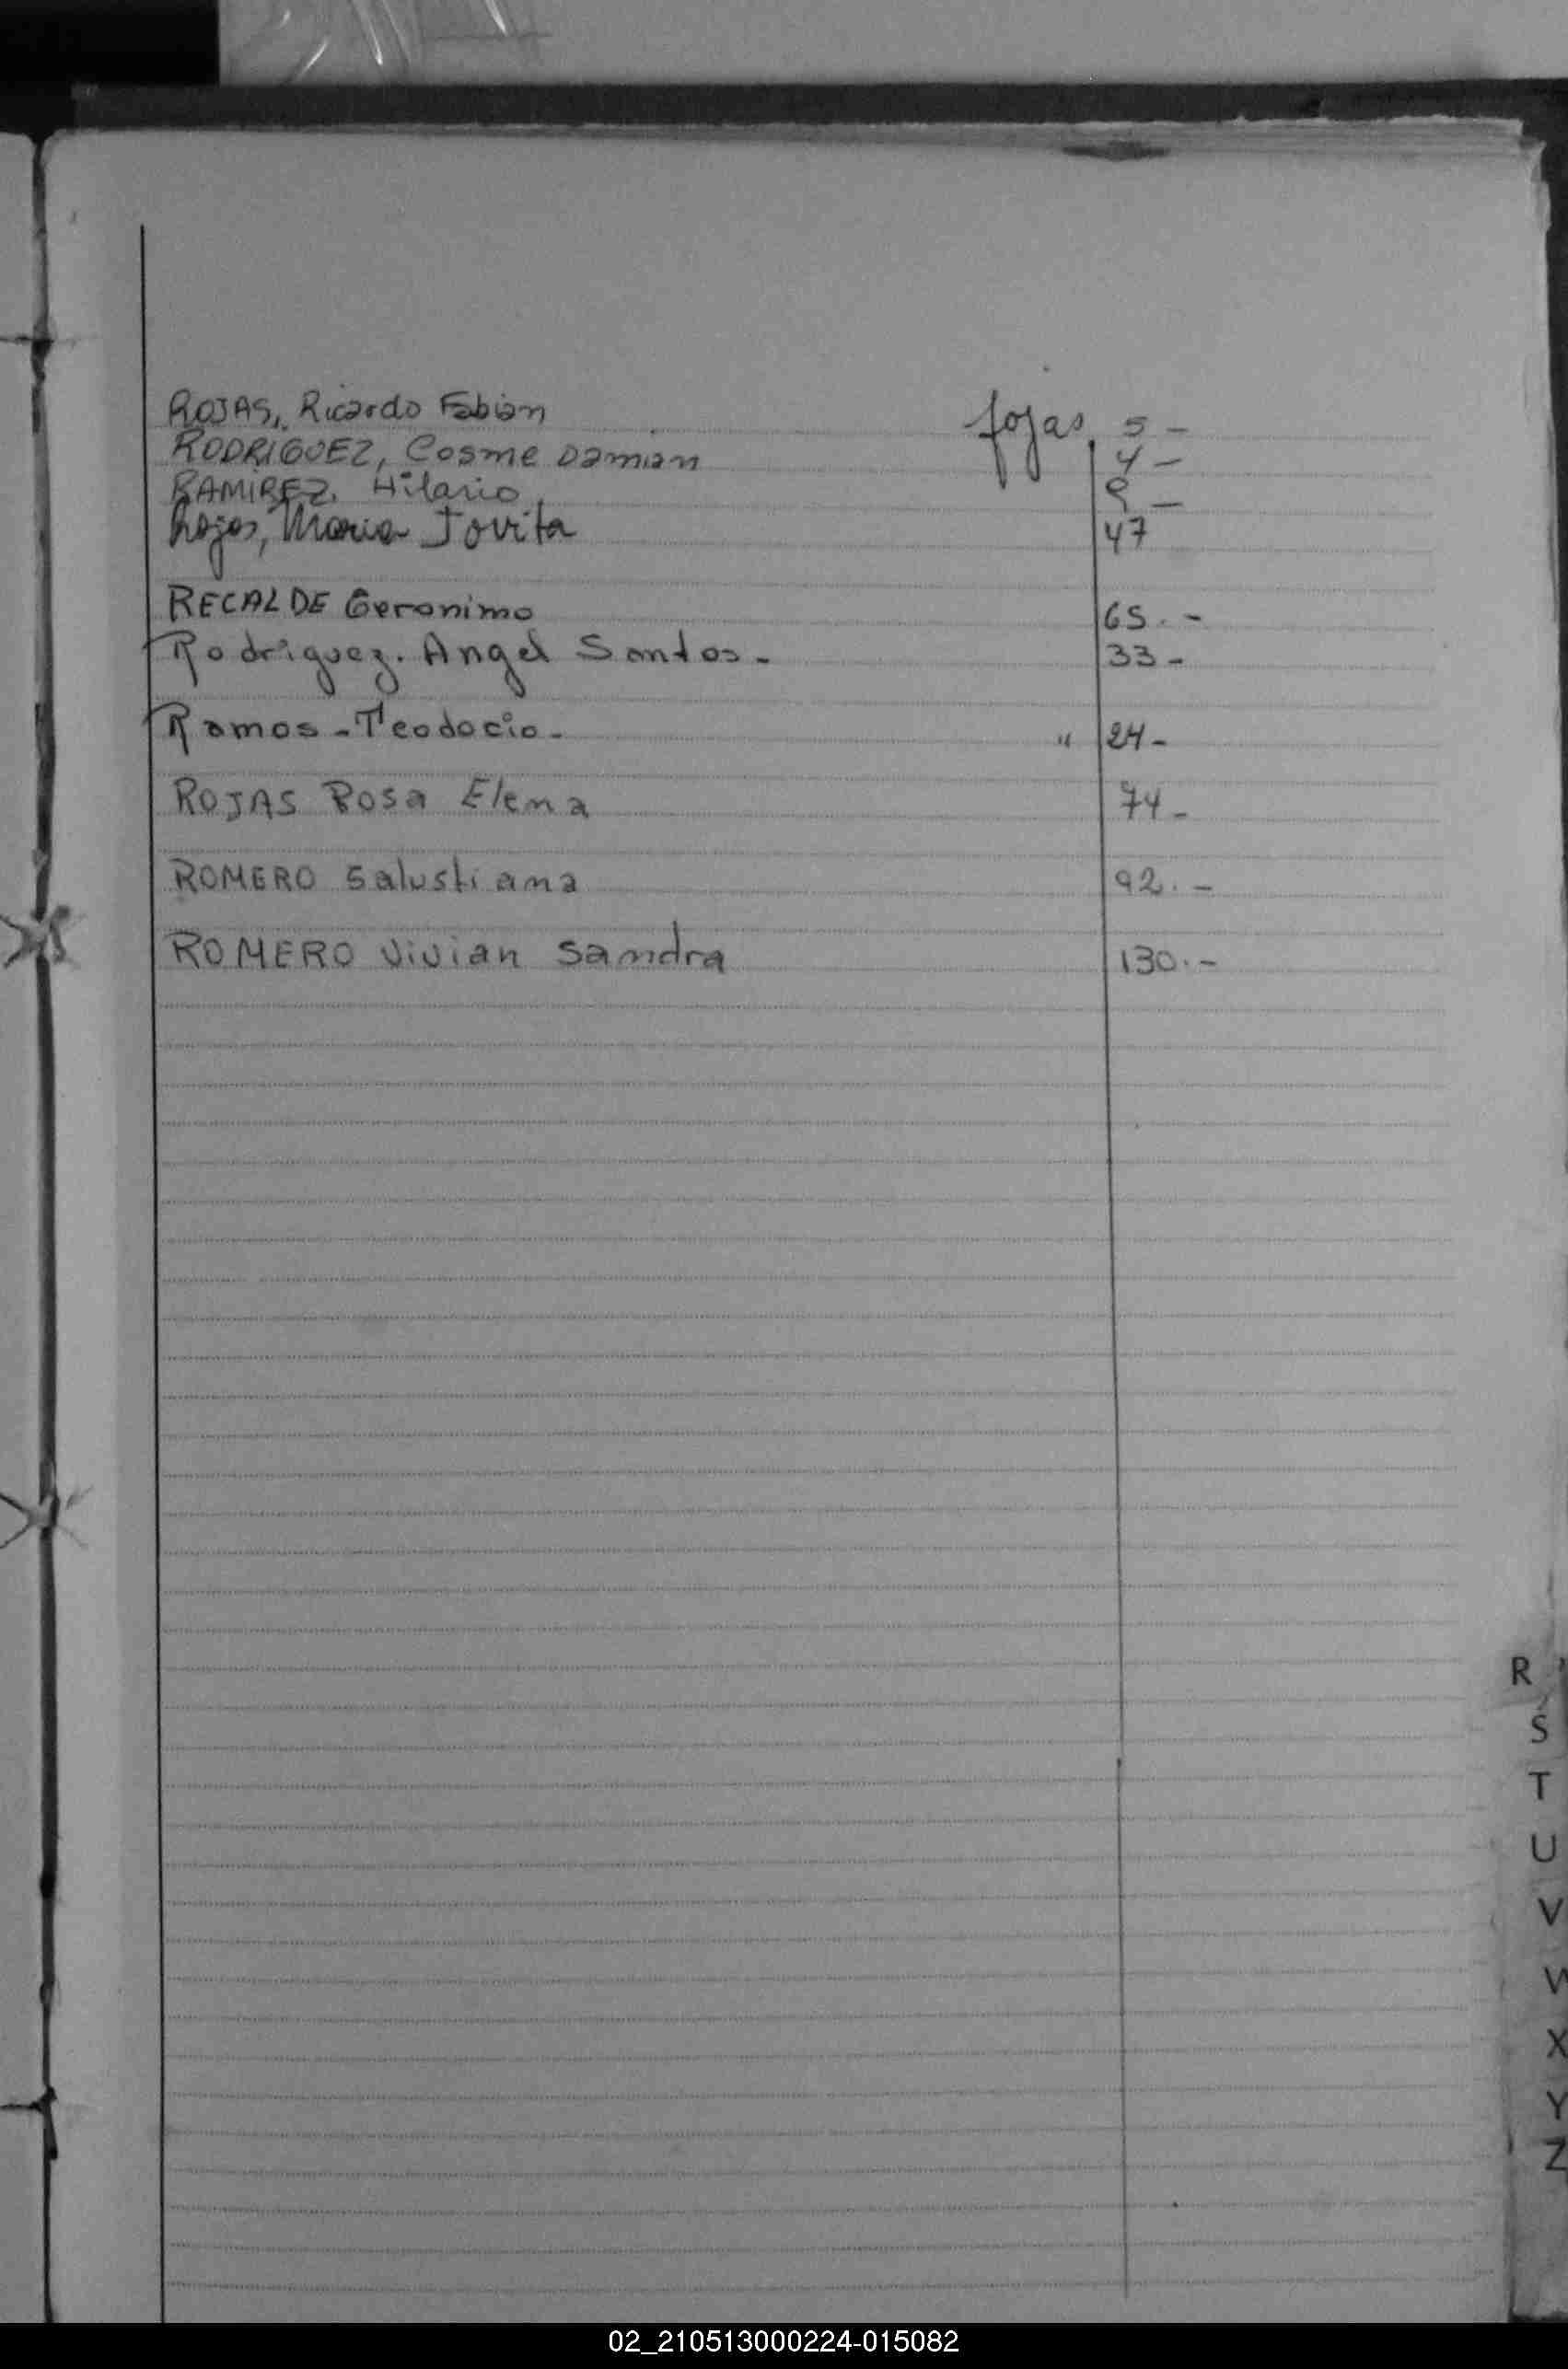 ROJAS, Ricardo Fabian fojas 5 -
RODRIGUEZ, Cosme Damian 4 -
RAMIREZ, Hilario 9 -
Rojas, Maria Jovita 47
RECALDE Geronimo 65. -
Rodriguez. Angel Santos - 33 -
Ramos - Teodocio - " 24 -
ROJAS Rosa Elena 74 -
ROMERO Salustiana 92. -
ROMERO Vivian Sandra 130. -
R
S
T
U
V
W
X
Y
Z
02_210513000224-015082